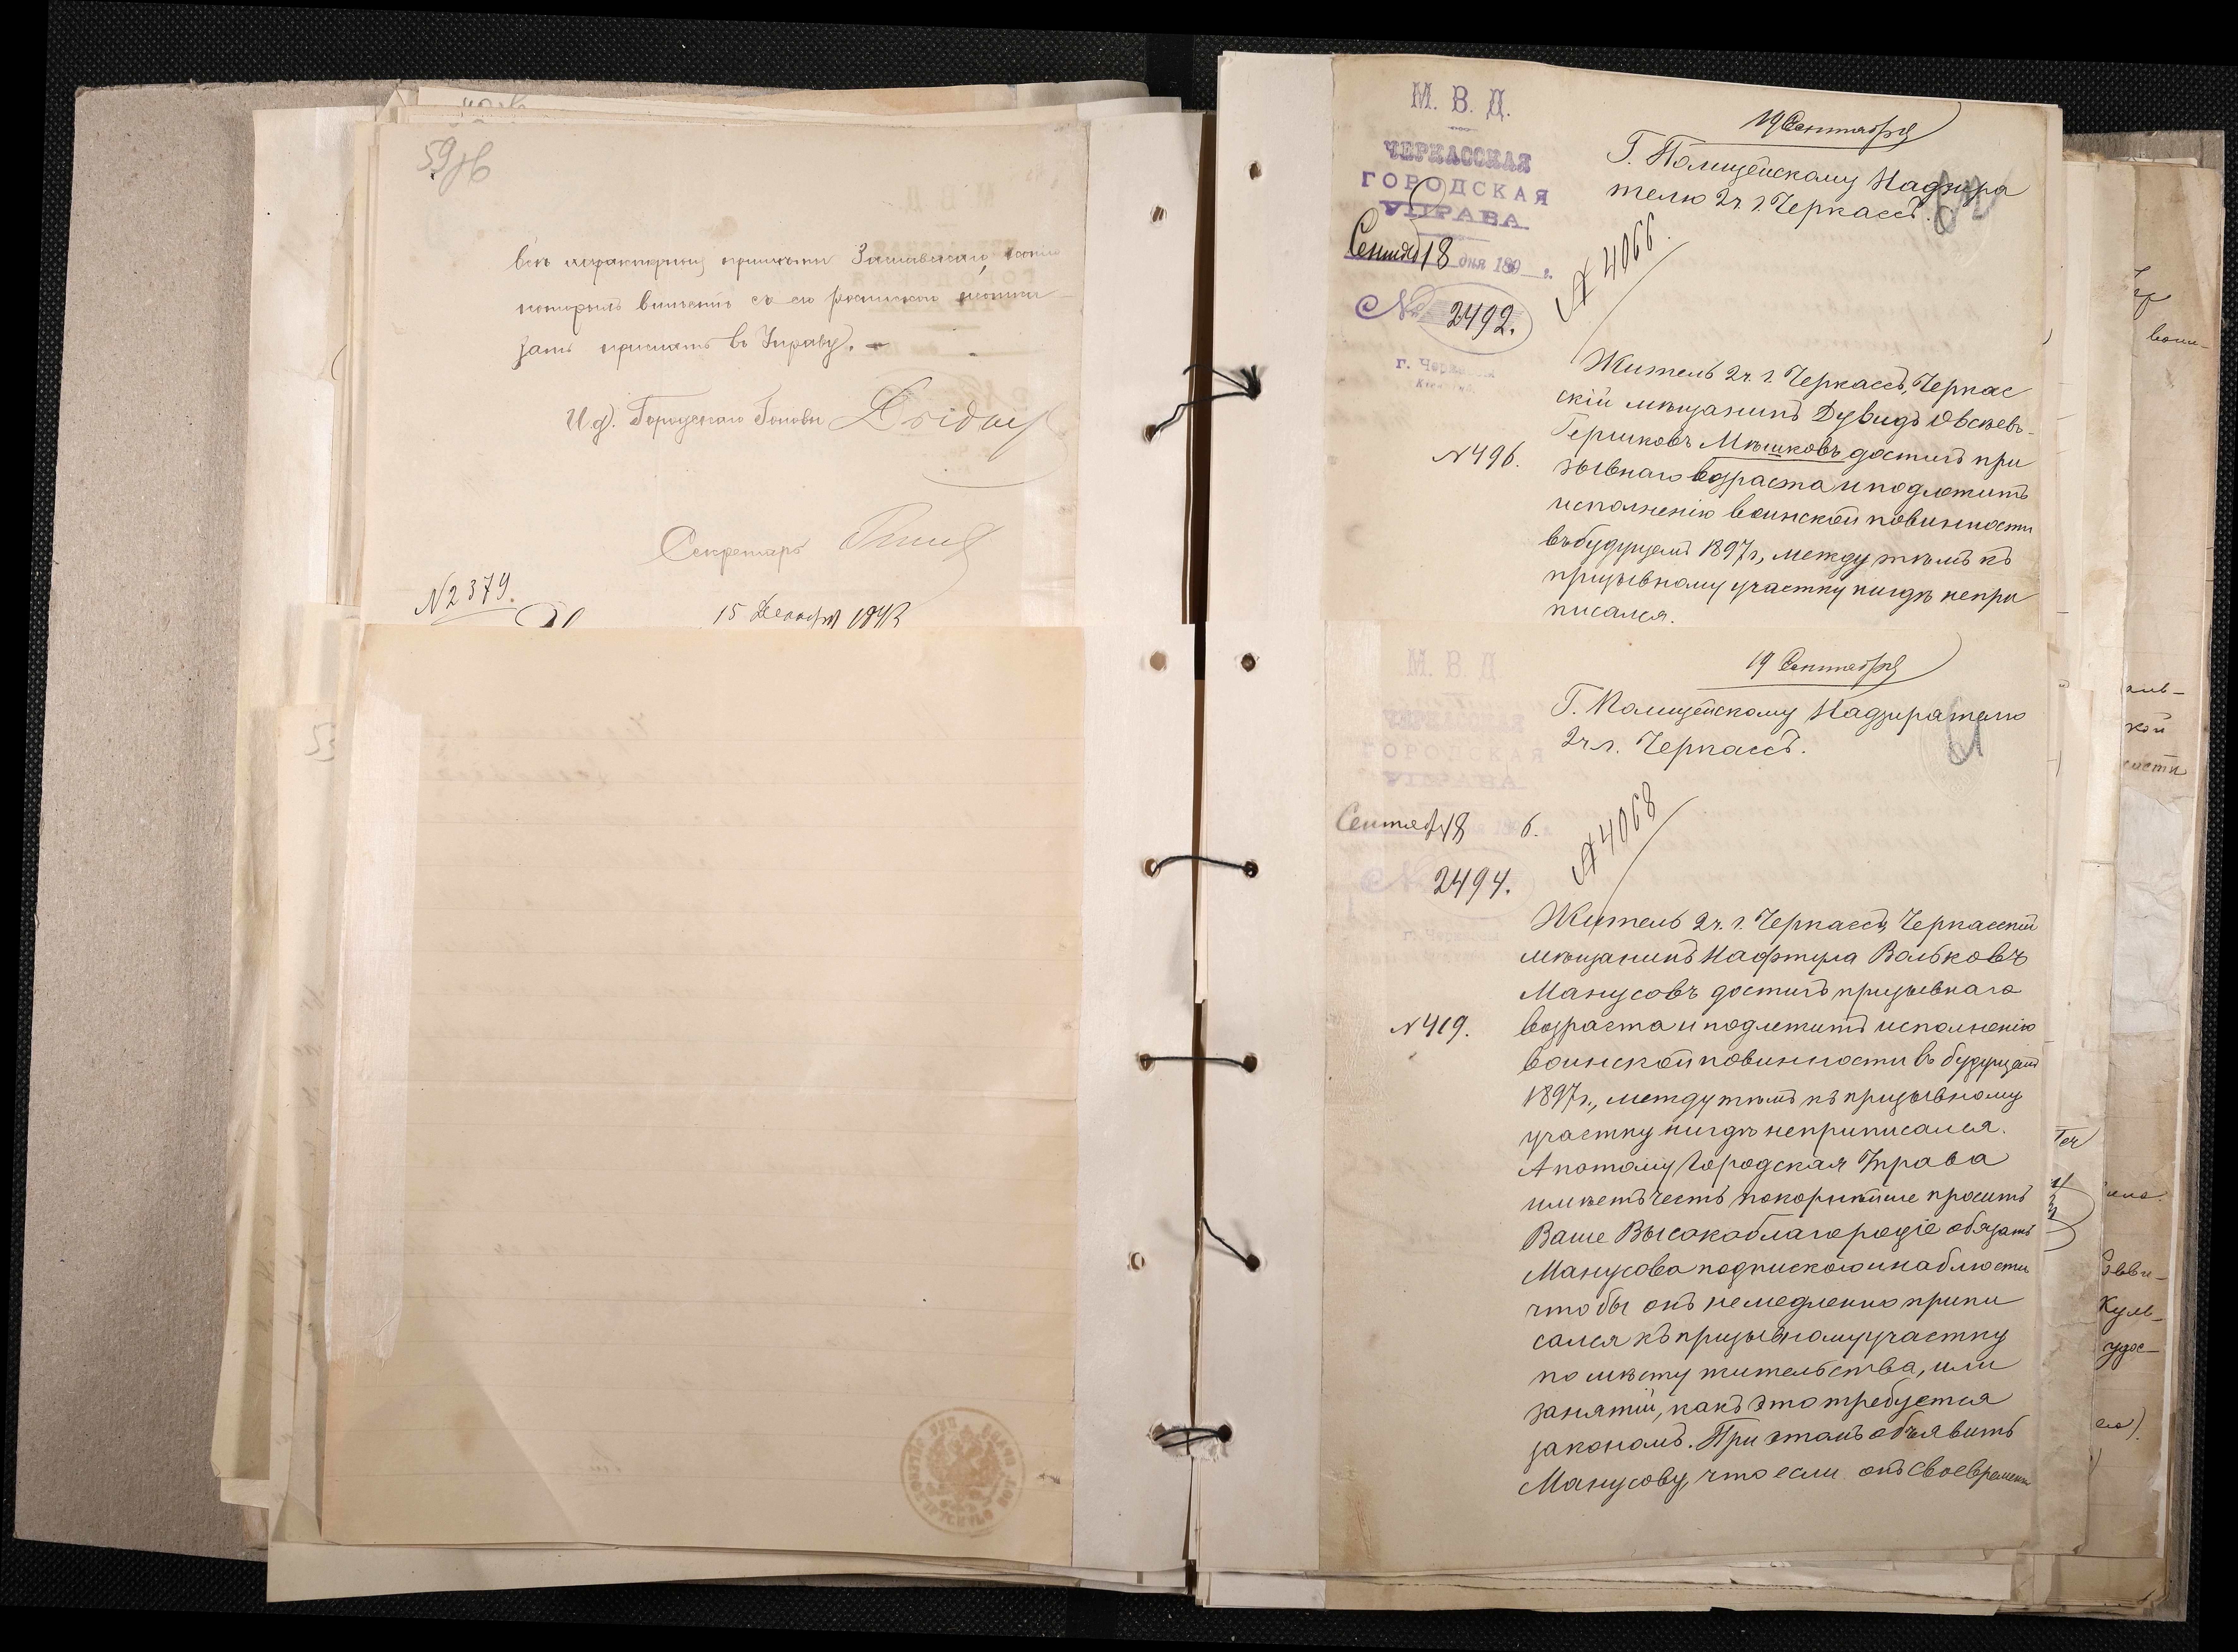 59об
который вместе съ его
зать прислать въ Управу.
И. д. Городскаго Головы
Секретарь
N 2379.
15 Декабря
М. В. Д.
ЧЕРКАССКАЯ
ГОРОДСКАЯ
УПРАВА
Сентяб 18 дня 189 г.
№ 2492.
г. Черкассы
19 Сентября
Г. Полицейскому Надзира
телю 2ч. г. Черкассъ.
№ 4066.
Житель 2ч. г. Черкассъ, Черкас
скій мѣщанинъ Дувидъ Овсѣевъ-
Гершковъ Мѣшковъ достигъ при
N 496.
зывнаго возраста и подлежитъ
исполненію воинской повинности
въ будущемъ 1897 г., между тѣмъ къ
призывному участку нигдѣ непри
писался.
М. В. Д.
ЧЕРКАССКАЯ
ГОРОДСКАЯ
УПРАВА
Сентяб 18 6.
№ 2494.
19 Сентября
Г. Полицейскому Надзирателю
2ч г. Черкассъ.
№ 4068
Житель 2ч. г. Черкассъ, Черкасскій
мѣщанинъ Нафтула Вольковъ
Манусовъ достигъ призывнаго
N 419.
возраста и подлежитъ исполненію
воинской повинности въ будущемъ
1897 г., между тѣмъ къ призывному
участку нигдѣ неприписался.
А потому Городская Управа
имѣетъ честь покорнѣйше просить
Ваше Высокоблагородіе обязать
Манусова подпискою и наблюсти
чтобы онъ немедленно припи
сался къ призывному участку
по мѣсту жительства, или
занятій, какъ это требуется
закономъ. При этомъ объявить
Манусову, что если онъ своевременн